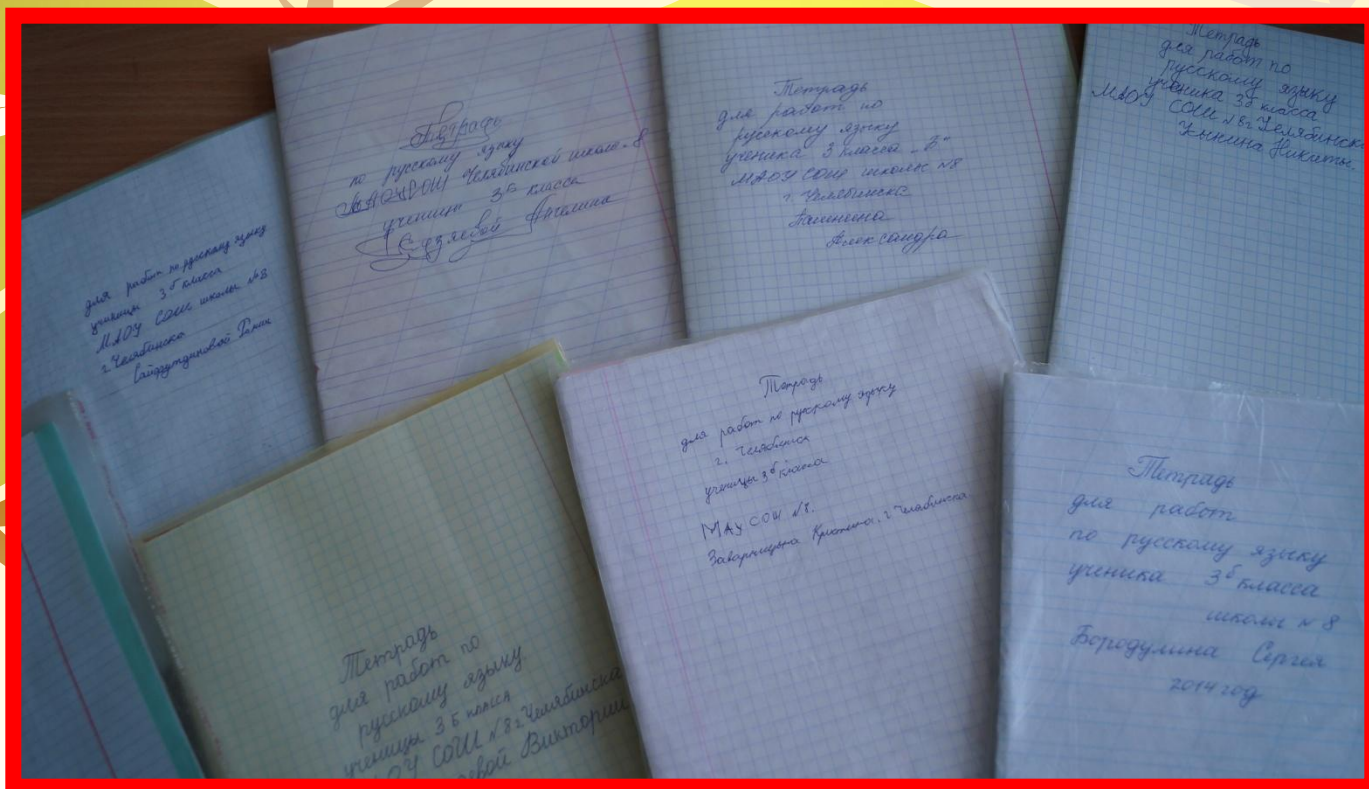 для работ по русскому языку
ученицы 3 б класса
МАОУ СОШ школы №8
г. Челябинска
Тетрадь
по русскому языку
Челябинской школе-8
ученицы 3б класса
Тетрадь
для работ по
русскому языку
ученика 3 класса "Б"
МАОУ СОШ школы №8
г. Челябинска
Александра
Тетрадь
для работ по
русскому языку
ученика 3б класса
МАОУ СОШ №8 г Челябинска
Никиты
Тетрадь
для работ по
русскому языку
ученицы 3 Б класса
СОШ №8 г. Челябинска
Виктории
Тетрадь
для работ по русскому языку
г. Челябинск
ученицы 3б класса
МАУ СОШ №8.
г. Челябинска
Тетрадь
для работ
по русскому языку
ученика 3б класса
школы № 8
Бородулина Сергея
2014 год